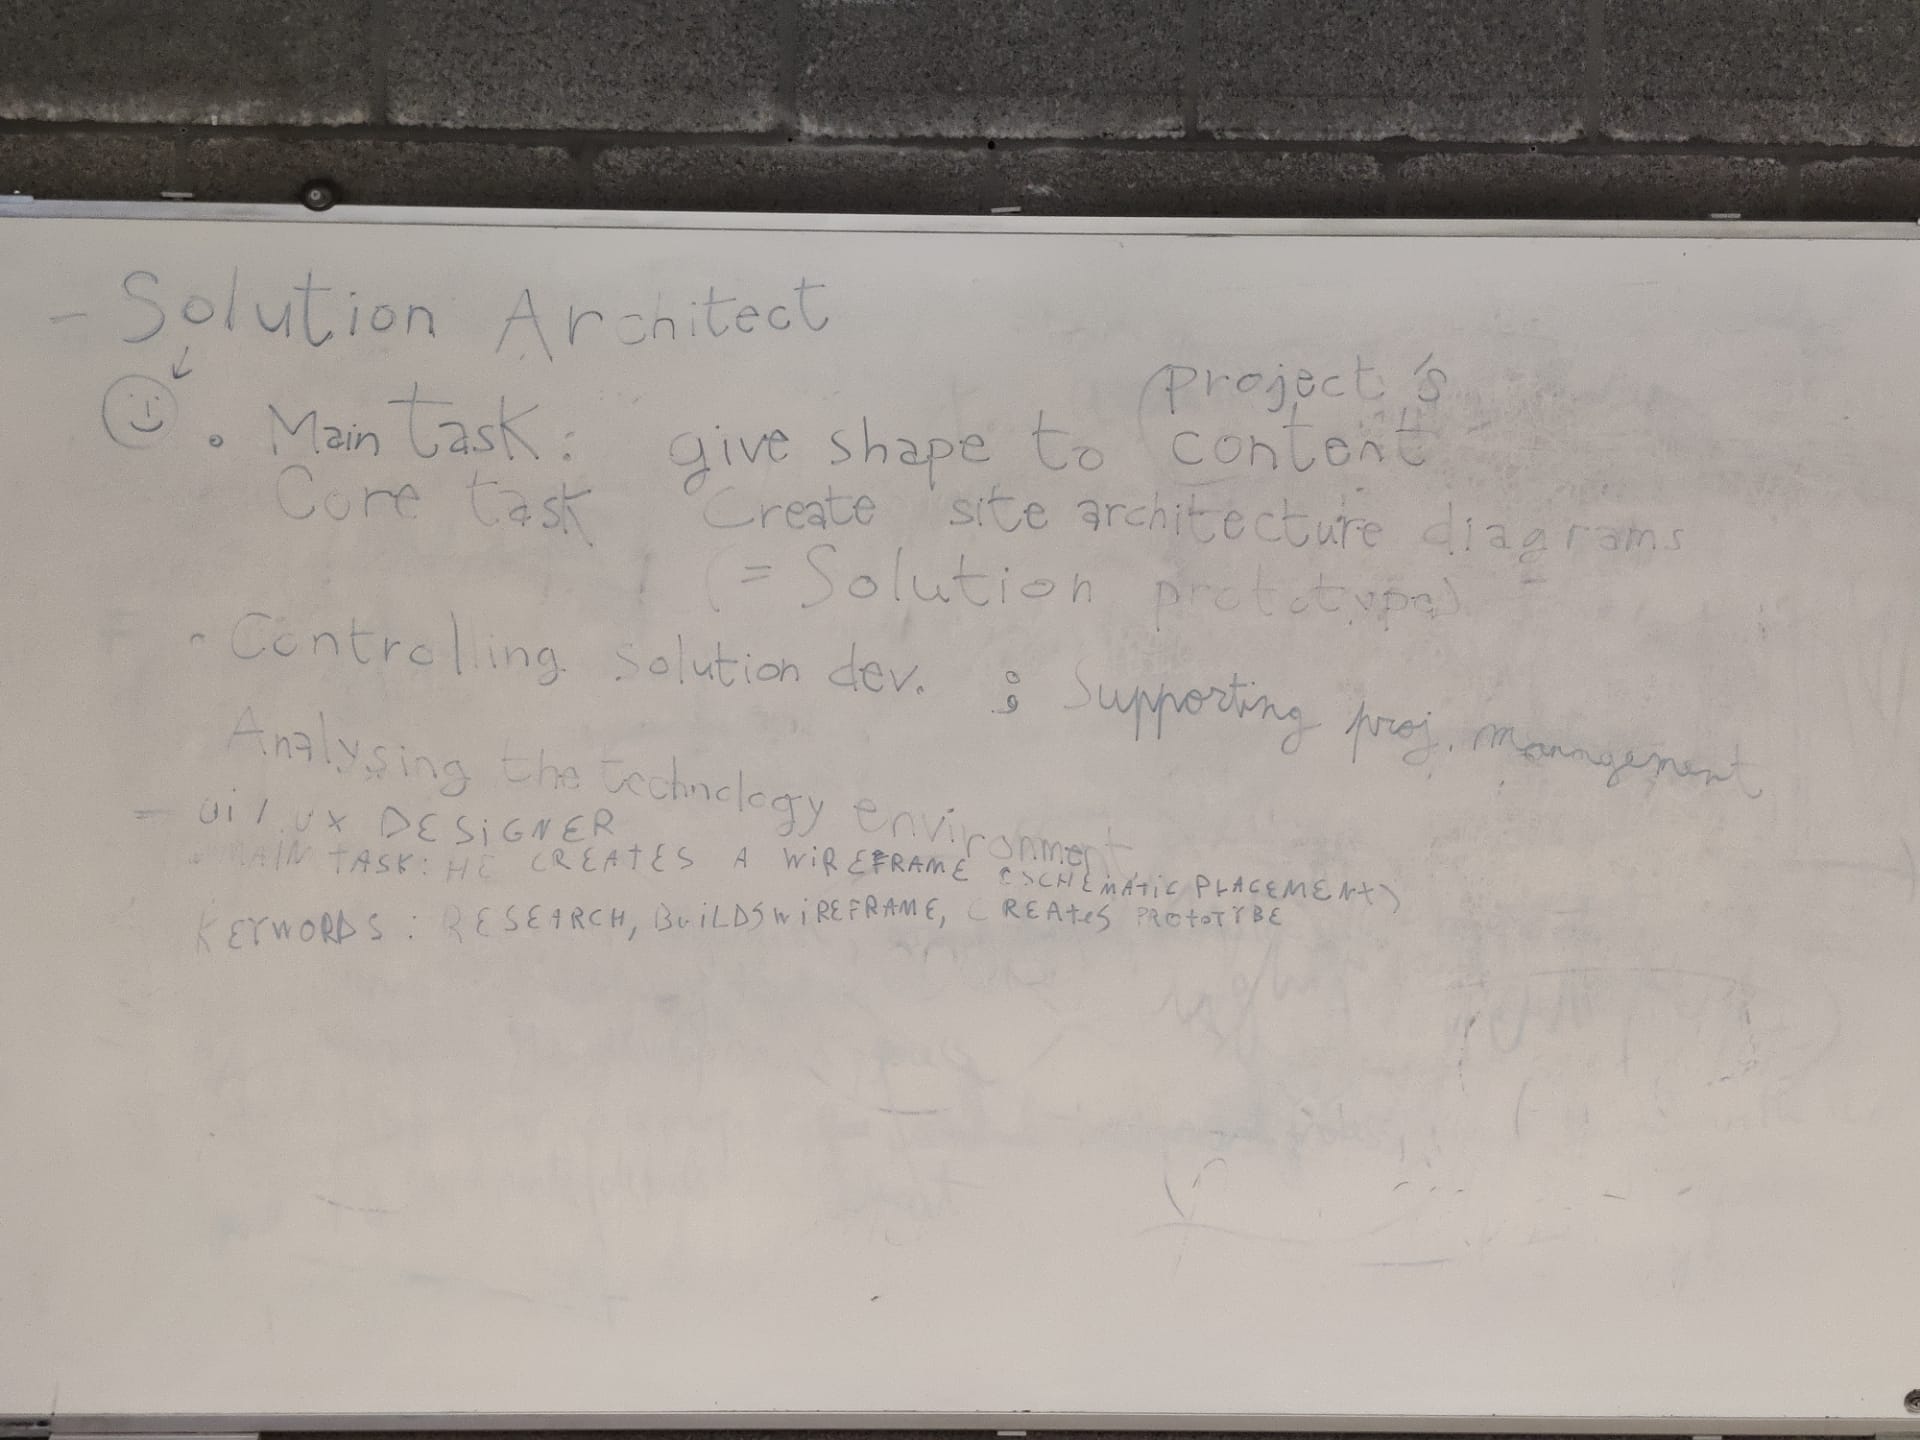 - Solution Architect
project's
• Main task: give shape to content
Core task Create site architecture diagrams
(= Solution prototype)
- Controlling solution dev. ; Supporting proj. management
Analysing the technology environment
- ui / ux DESiGNER
MAIN TASK: HE CREATES A WiREFRAME (SCHEMATiC PLACEMENT)
KEYWORDS: RESEARCH, BUiLDS WiREFRAME, CREAtES PROtOTYBE